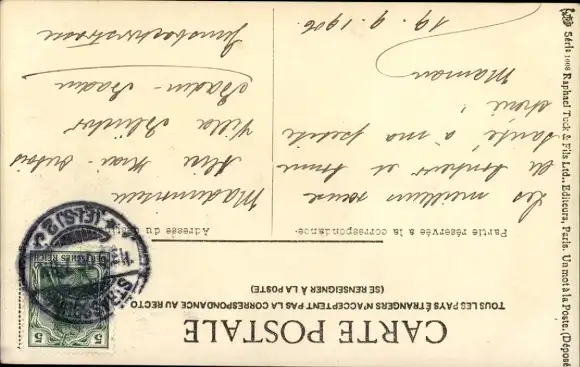 CARTE POSTALE
TOUS LES PAYS ÉTRANGERS N'ACCEPTENT PAS LA CORRESPONDANCE AU RECTO
(SE RENSEIGNER À LA POSTE)
Partie réservée a la correspondance.
Les meilleurs vœux
de bonheur et bonne
santé à ma petite
chérie!
Maman
19. 9. 1906
Adresse du
Mademoiselle
Alice
Villa
Baden-Baden
Série 1008 Raphael Tuck & Fils Ltd., Editeurs, Paris. Un mot à la Poste. (Déposé
5
5